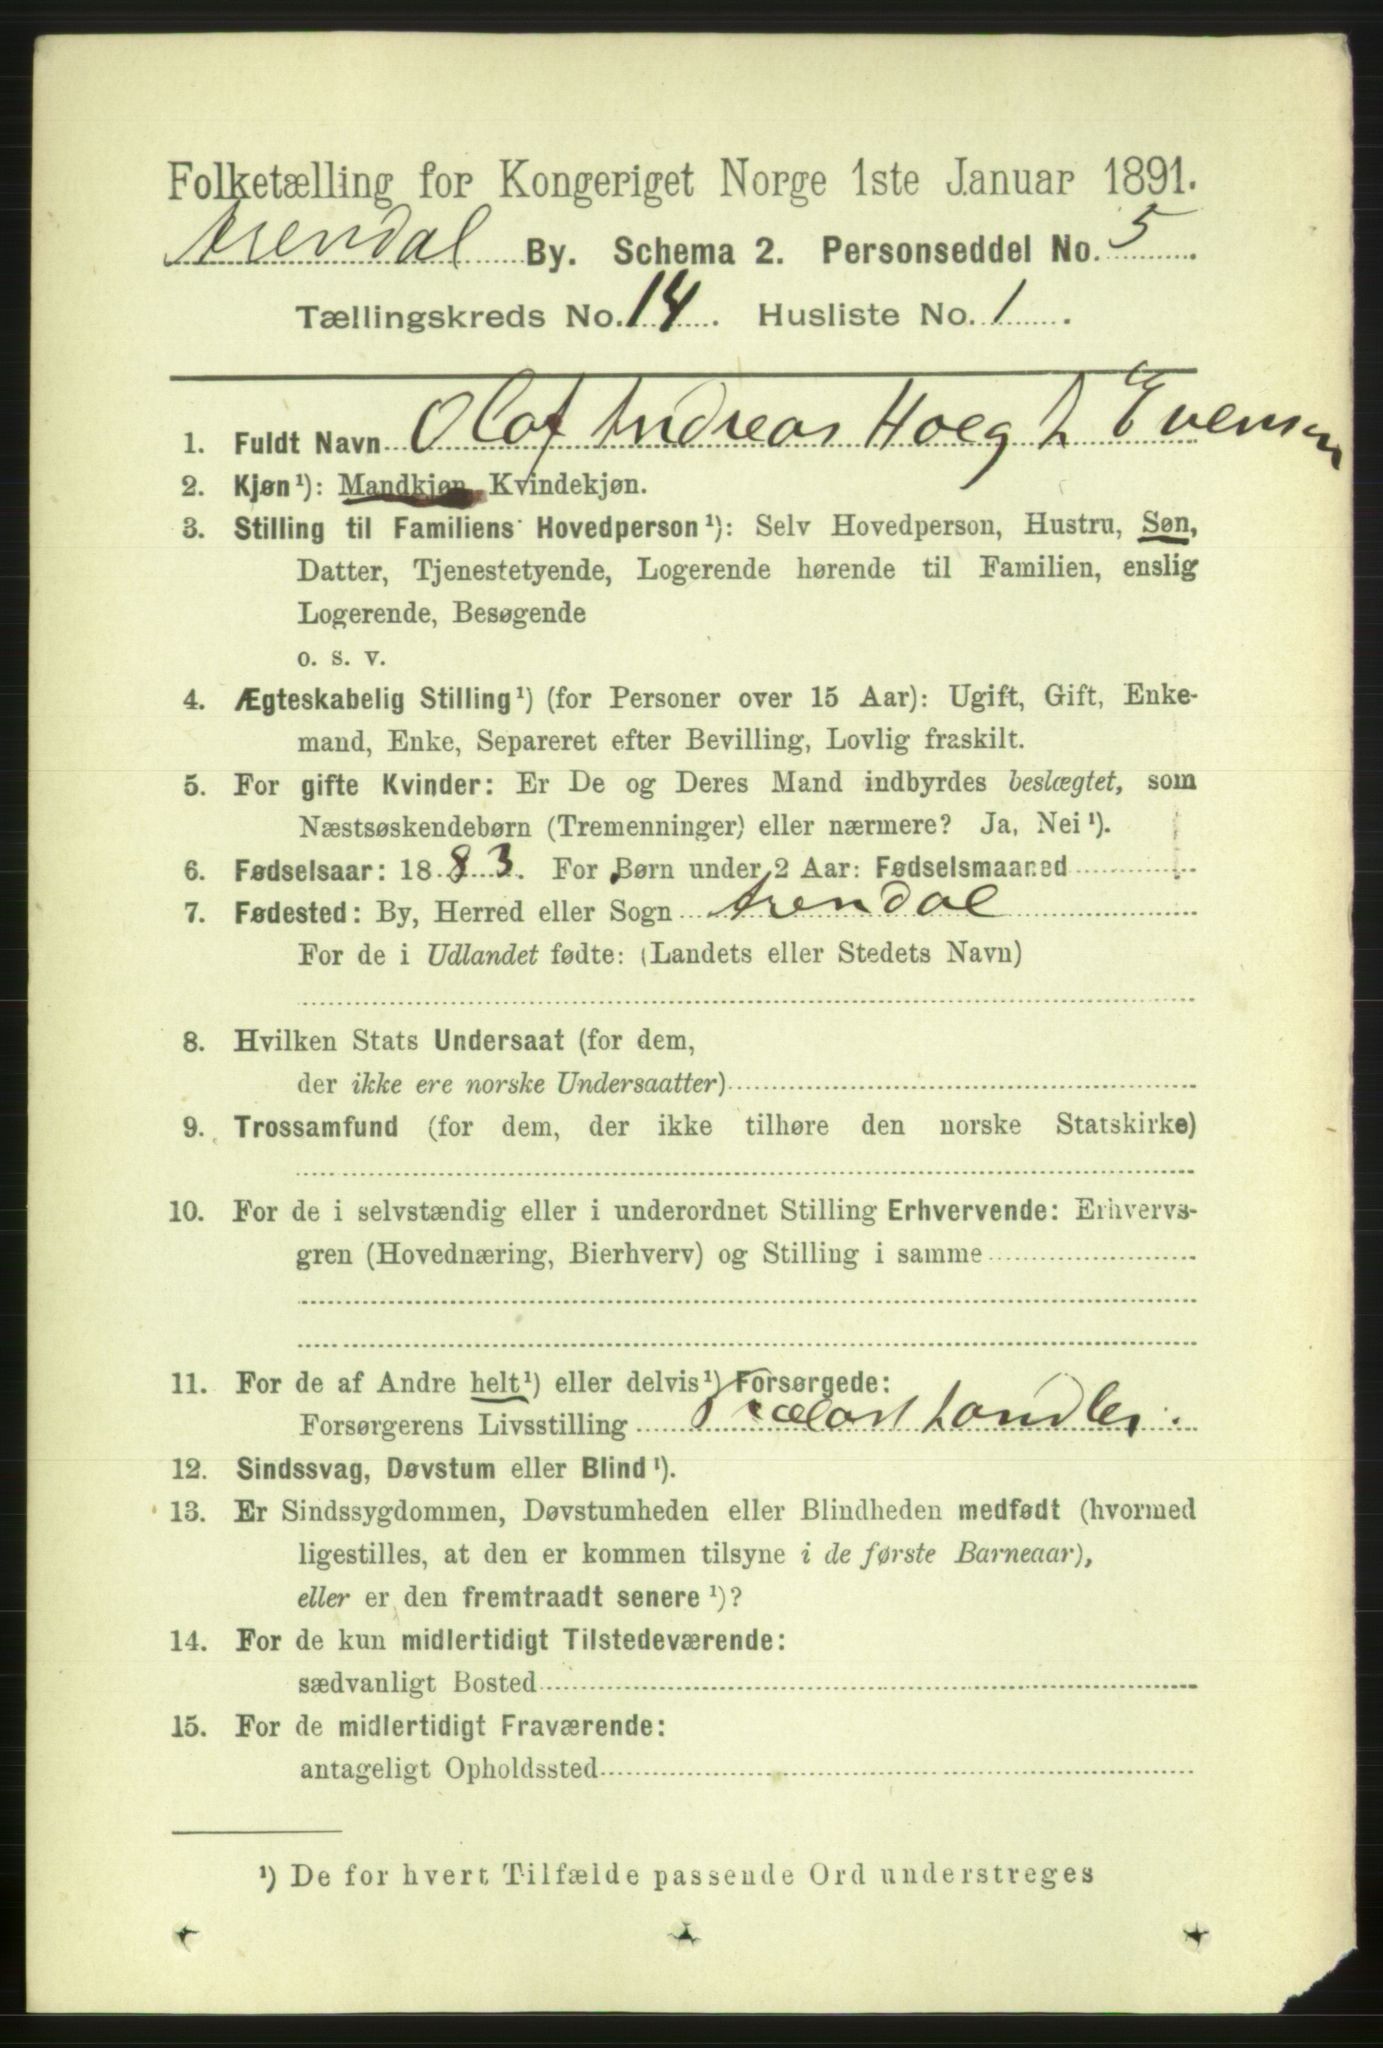 Folketælling for Kongeriget Norge 1ste Januar 1891.
Arendal By. Schema 2. Personseddel No. 5
Tællingskreds No. 14. Husliste No. 1.
1. Fuldt Navn Olaf Andreas Hoegh Evensen
2. Kjøn¹): Mandkjøn, Kvindekjøn.
3. Stilling til Familiens Hovedperson¹): Selv Hovedperson, Hustru, Søn,
Datter, Tjenestetyende, Logerende hørende til Familien, enslig
Logerende, Besøgende
o. s. v.
4. Ægteskabelig Stilling¹) (for Personer over 15 Aar): Ugift, Gift, Enke-
mand, Enke, Separeret efter Bevilling, Lovlig fraskilt.
5. For gifte Kvinder: Er De og Deres Mand indbyrdes beslægtet, som
Næstsøskendebørn (Tremenninger) eller nærmere? Ja, Nei¹).
6. Fødselsaar: 1883. For Børn under 2 Aar: Fødselsmaaned
7. Fødested: By, Herred eller Sogn Arendal
For de i Udlandet fødte: (Landets eller Stedets Navn)
8. Hvilken Stats Undersaat (for dem,
der ikke ere norske Undersaatter)
9. Trossamfund (for dem, der ikke tilhøre den norske Statskirke)
10. For de i selvstændig eller i underordnet Stilling Erhvervende: Erhvervs-
gren (Hovednæring, Bierhverv) og Stilling i samme
11. For de af Andre helt¹) eller delvis¹) Forsørgede:
Forsørgerens Livsstilling
12. Sindssvag, Døvstum eller Blind¹).
13. Er Sindssygdommen, Døvstumheden eller Blindheden medfødt (hvormed
ligestilles, at den er kommen tilsyne i de første Barneaar),
eller er den fremtraadt senere¹)?
14. For de kun midlertidigt Tilstedeværende:
sædvanligt Bosted
15. For de midlertidigt Fraværende:
antageligt Opholdssted
¹) De for hvert Tilfælde passende Ord understreges